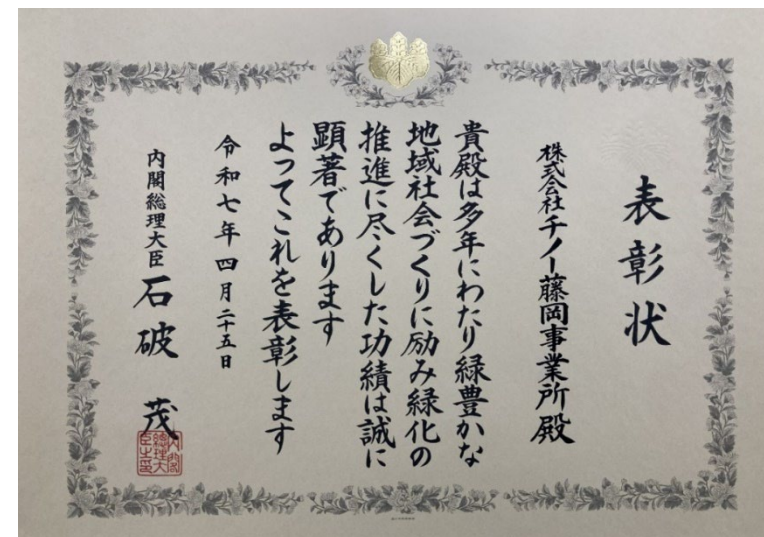 表彰状
株式会社チノー藤岡事業所殿
貴殿は多年にわたり緑豊かな
地域社会づくりに励み緑化の
推進に尽くした功績は誠に
顕著であります
よってこれを表彰します
令和七年四月二十五日
内閣総理大臣 石破 茂
内閣總理大臣之印